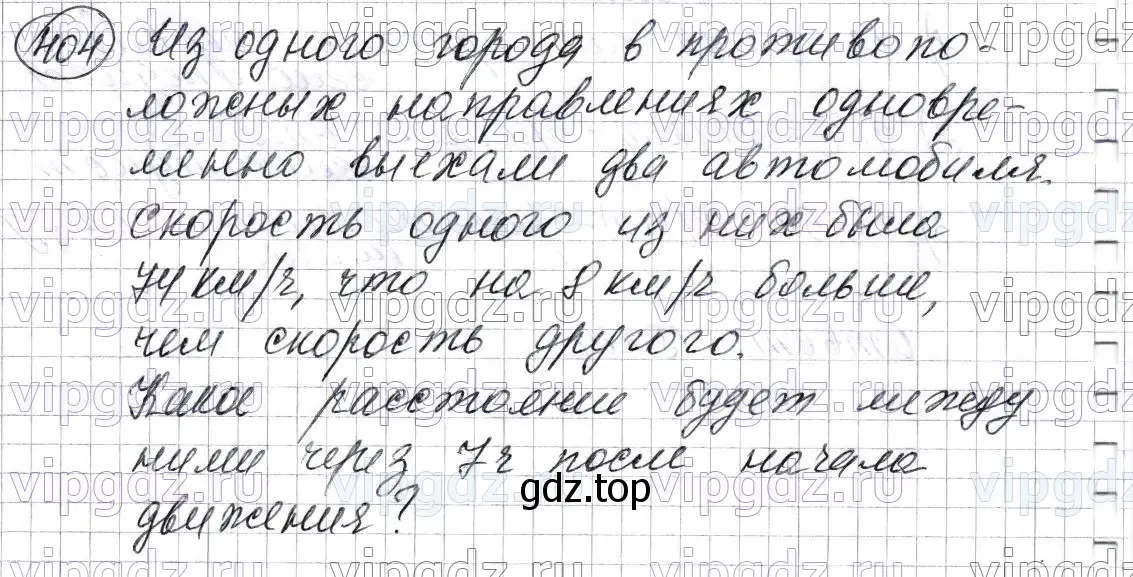 404 Из одного города в противопо-
ложных направлениях одновре-
менно выехали два автомобиля.
Скорость одного из них была
74 км/ч, что на 8 км/ч больше,
чем скорость другого.
Какое расстояние будет между
ними через 7 ч после начала
gdz.top
движения?